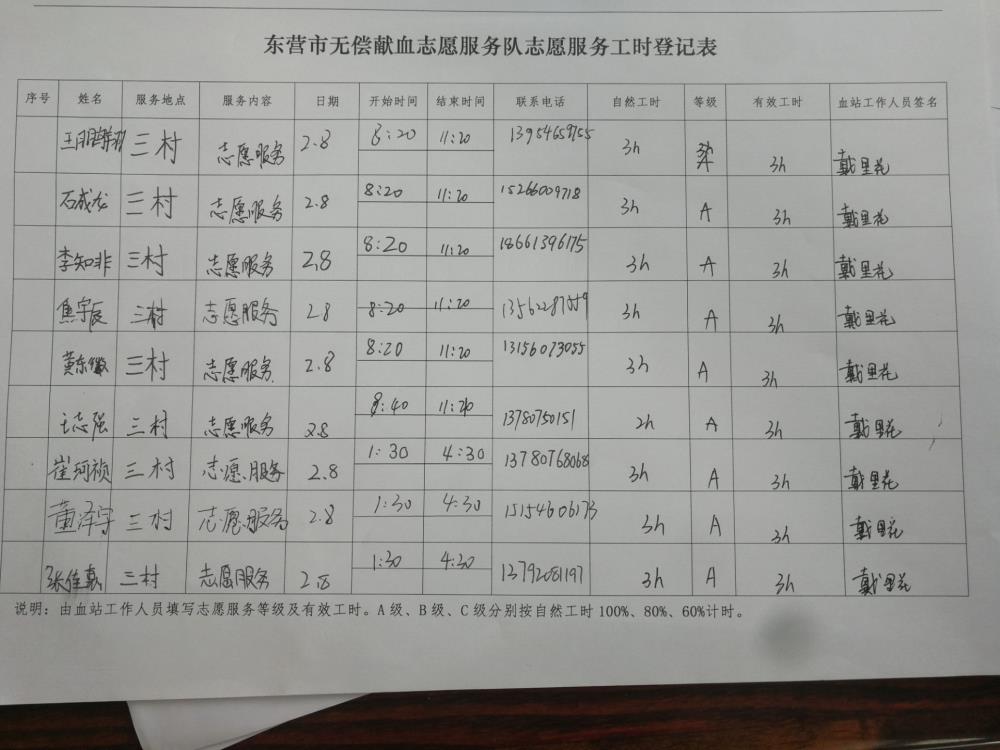 东营市无偿献血志愿服务队志愿服务工时登记表
序号 姓名 服务地点 服务内容 日期 开始时间 结束时间 联系电话 自然工时 等级 有效工时 血站工作人员签名
三村 志愿服务 2.8 8:20 11:20 13954659755 3h 3h 戴里花
石成龙 三村 志愿服务 2.8 8:20 11:20 15266009718 3h A 3h 戴里花
李知非 三村 志愿服务 2.8 8:20 11:20 18661396175 3h A 3h 戴里花
焦宇辰 三村 志愿服务 2.8 8:20 11:20 3h A 3h 戴里花
三村 志愿服务 2.8 8:20 11:20 13156073055 3h A 3h 戴里花
王志强 三村 志愿服务 2.8 8:40 11:20 13780750151 2h A 3h 戴里花
崔珂祯 三村 志愿服务 2.8 1:30 4:30 13780768068 3h A 3h 戴里花
董泽宇 三村 志愿服务 2.8 1:30 4:30 15154606173 3h A 3h 戴里花
张佳嘉 三村 志愿服务 2.8 1:30 4:30 13792081197 3h A 3h 戴里花
说明：由血站工作人员填写志愿服务等级及有效工时。A级、B级、C级分别按自然工时100%、80%、60%计时。